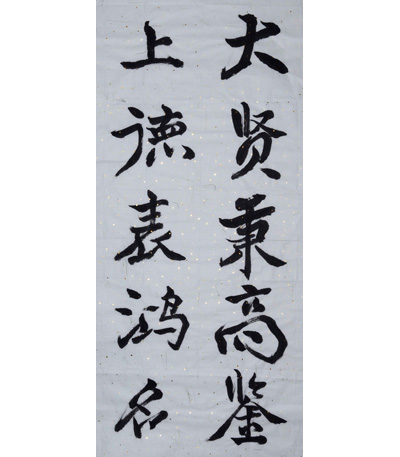 大贤秉高鉴
上德表鸿名